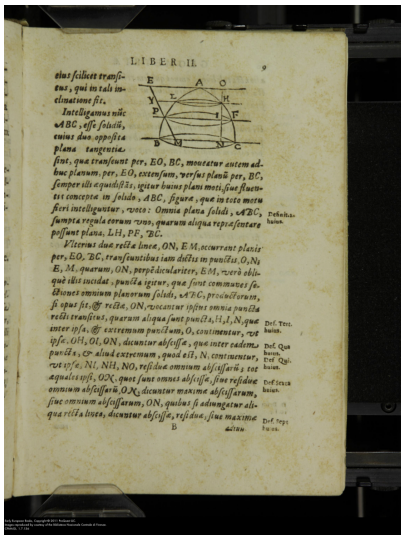 LIBER II.
9
eius scilicet transi-
tus, qui in tali in-
clinatione fit.
Intelligamus nũc
ABC, esse solidũ,
cuius duo opposita
plana tangentia
E A O
L H
Y
P I F
B M N C
sint, quæ transeunt per, EO, BC, moueatur autem ad-
huc planum, per, EO, extensum, versus planũ per, BC,
semper illi æquidistãs, igitur huius plani moti, siue fluen-
tis concepta in solido, ABC, figuræ, quæ in toto motu
fieri intelliguntur, voco: Omnia plana solidi, ABC,
sumpta regula eorum vno, quarum aliqua repræsentare
possunt plana, LH, PF, BC.
Vlterius duæ rectæ lineæ, ON, EM, occurrant planis
per, EO, BC, transeuntibus iam dictis in punctis, O, N;
E, M, quarum, ON, perpẽdiculariter, EM, verò obli-
què illis incidat, puncta igitur, quæ sunt communes se-
ctiones omnium planorum solidi, ABC, productorum,
si opus sit, & rectæ, ON, vocantur ipsius omnia puncta
recti transitus, quarum aliqua sunt puncta, H, I, N, quæ
inter ipsa, & extremum punctum, O, continentur, vt
ipsæ, OH, OI, ON, dicuntur abscissæ, quæ inter eadem
puncta, & aliud extremum, quod est, N, continentur,
vt ipsæ, NI, NH, NO, residuæ omnium abscissarũ; tot
æquales ipsi, ON, quot sunt omnes abscissæ, siue residuæ
omnium abscissarũ, ON, dicuntur maximæ abscissarum,
siue omnium abscissarum, ON, quibus si adiungatur ali-
qua recta linea, dicuntur abscissæ, residuæ, siue maximæ
B
Definitio
huius.
Def. Tert.
huius.
Def. Qua
huius.
Def. Qui.
huius.
Def. Sexta
huius.
Def. Sept
huius.